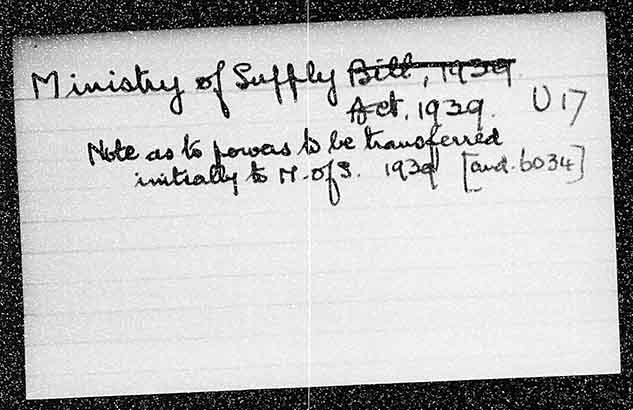 Ministry of Supply Bill, 1939.
Act, 1939. U 17
Note as to powers to be transferred
initially to M. of S. 1939 [cmd. 6034]